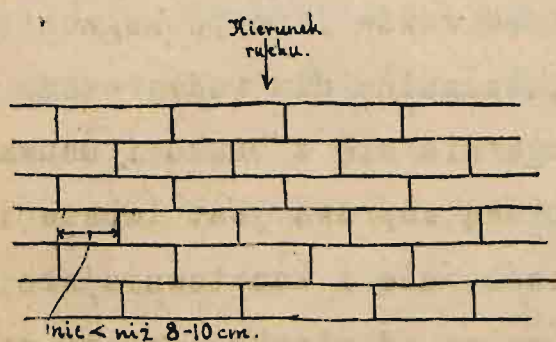 Kierunek
ruchu.
nie < niż 8-10 cm.